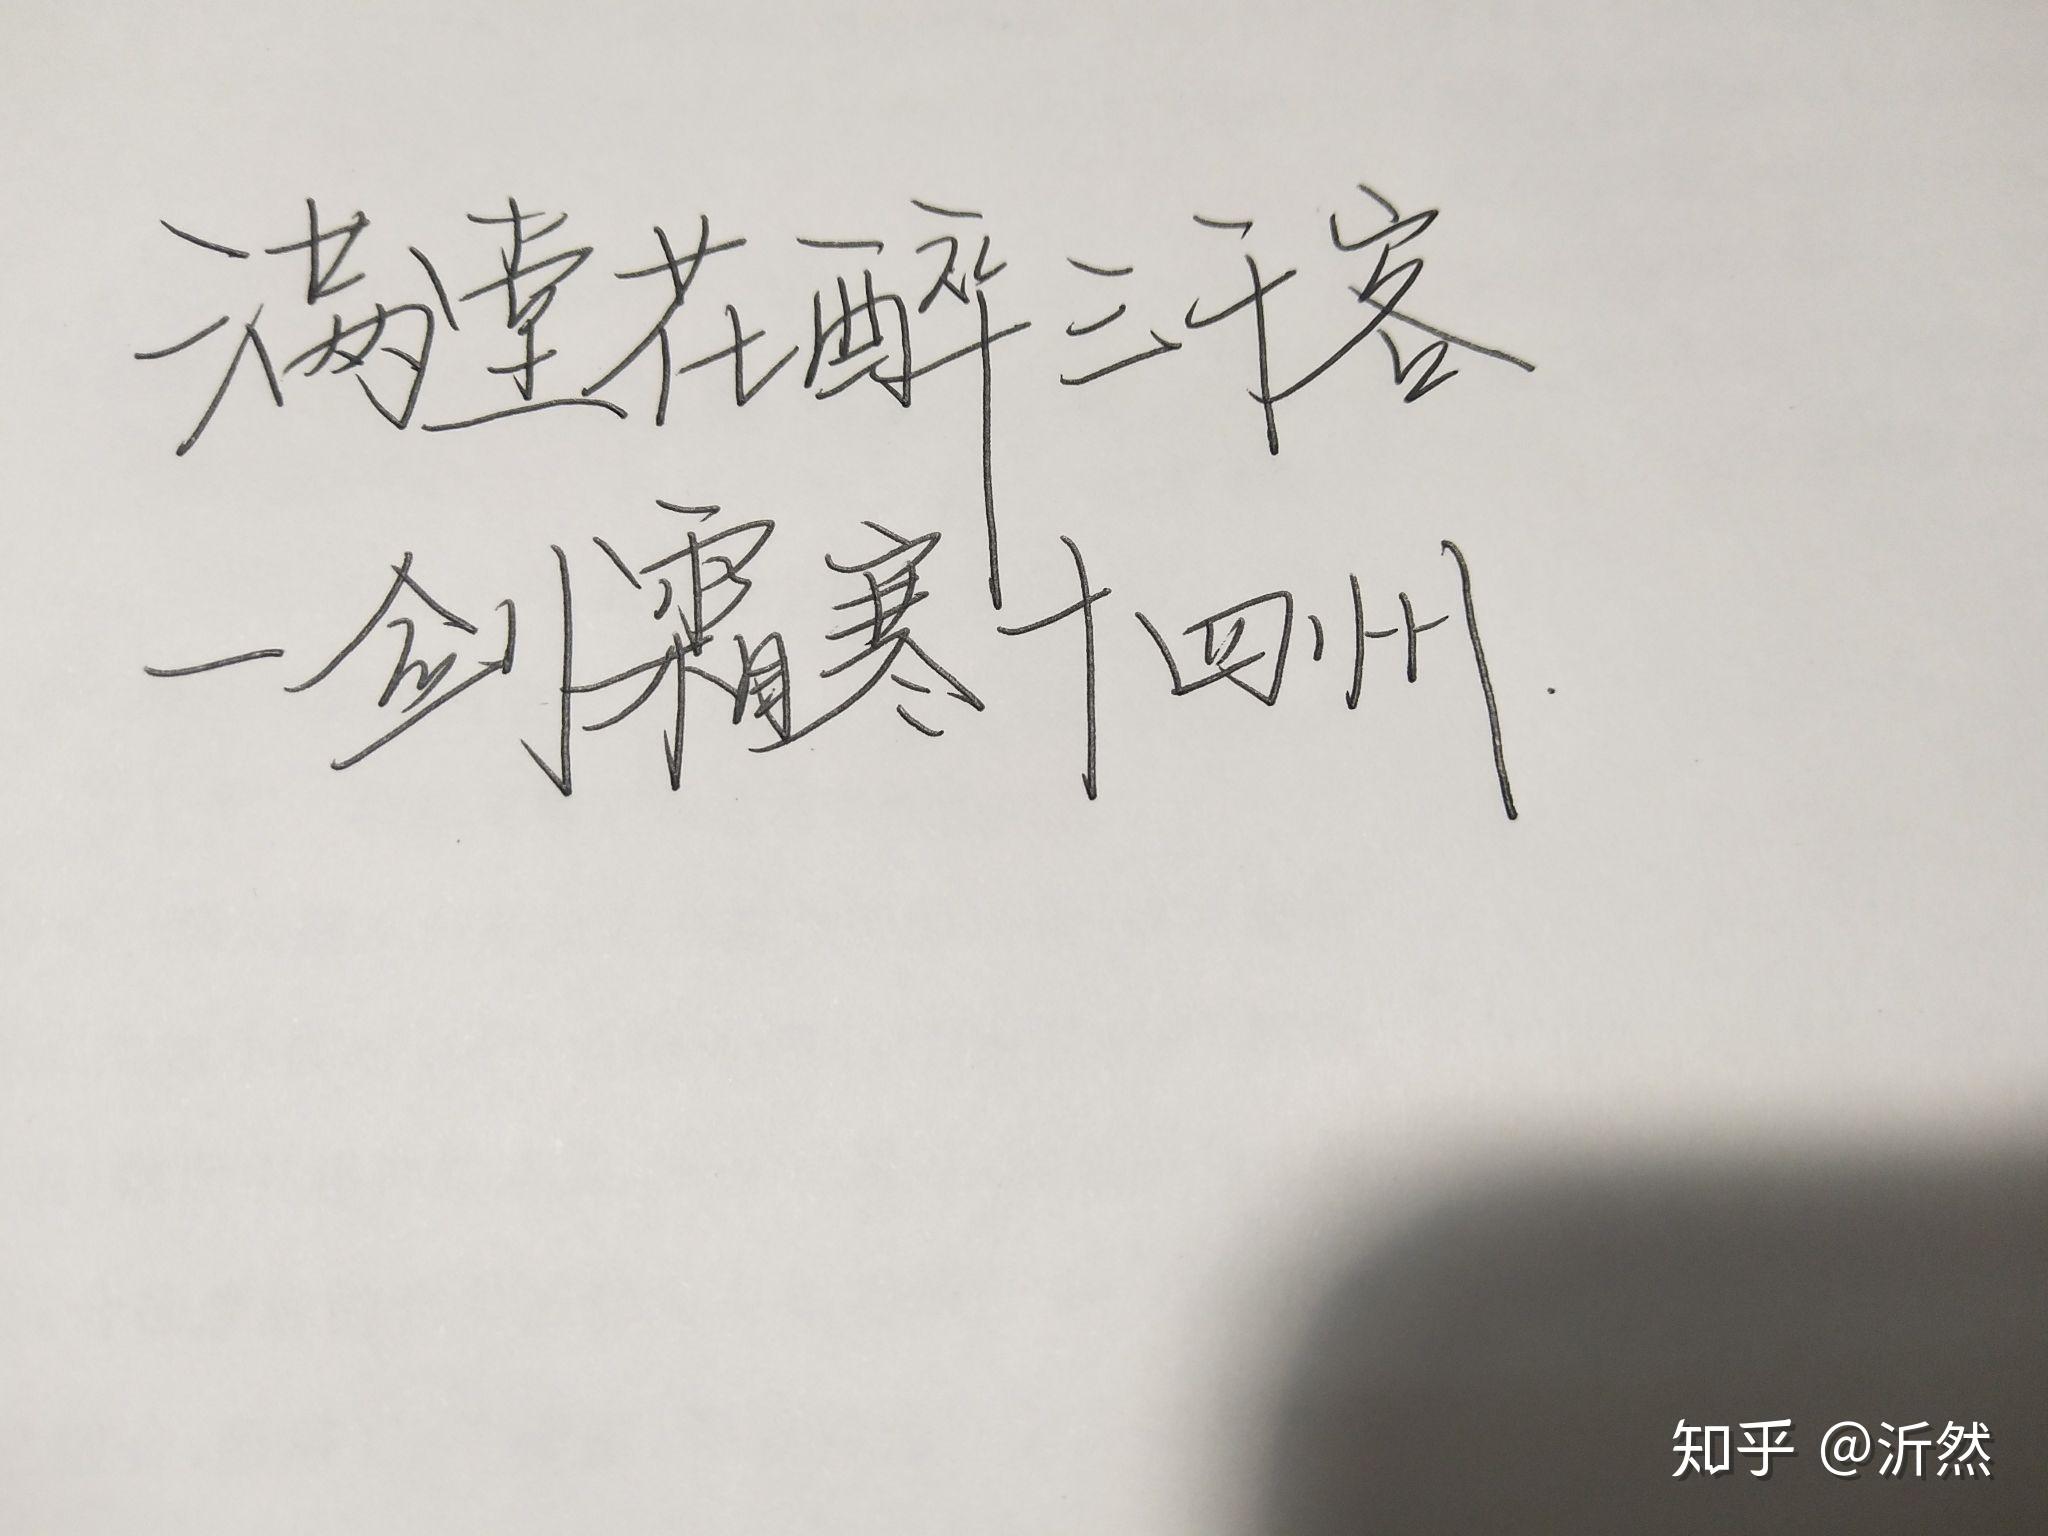 满堂花醉三千客
一剑霜寒十四州.
知乎 @沂然